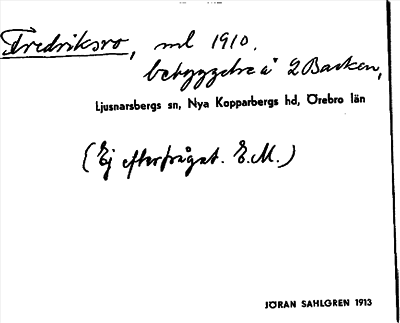 Fredriksro, ml 1910.
bebyggelse å 2 Backen,
Ljusnarsbergs sn, Nya Kopparbergs hd, Örebro län
(Ej efterfrågat. E.M.)
JÖRAN SAHLGREN 1913